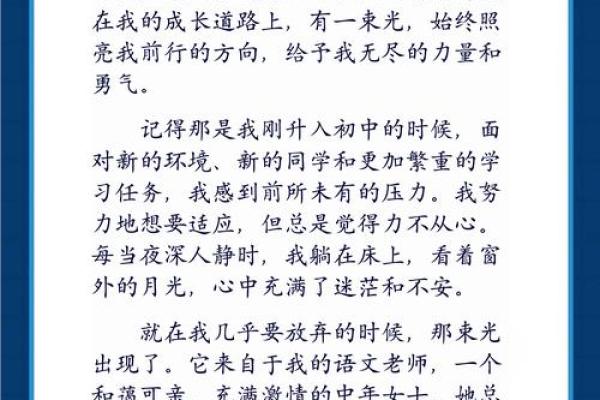 在我的成长道路上，有一束光，始终照
亮我前行的方向，给予我无尽的力量和
勇气。
记得那是我刚升入初中的时候，面
对新的环境、新的同学和更加繁重的学
习任务，我感到前所未有的压力。我努
力地想要适应，但总是觉得力不从心。
每当夜深人静时，我躺在床上，看着窗
外的月光，心中充满了迷茫和不安。
就在我几乎要放弃的时候，那束光
出现了。它来自于我的语文老师，一个
和蔼可亲、充满激情的中年女士。她总